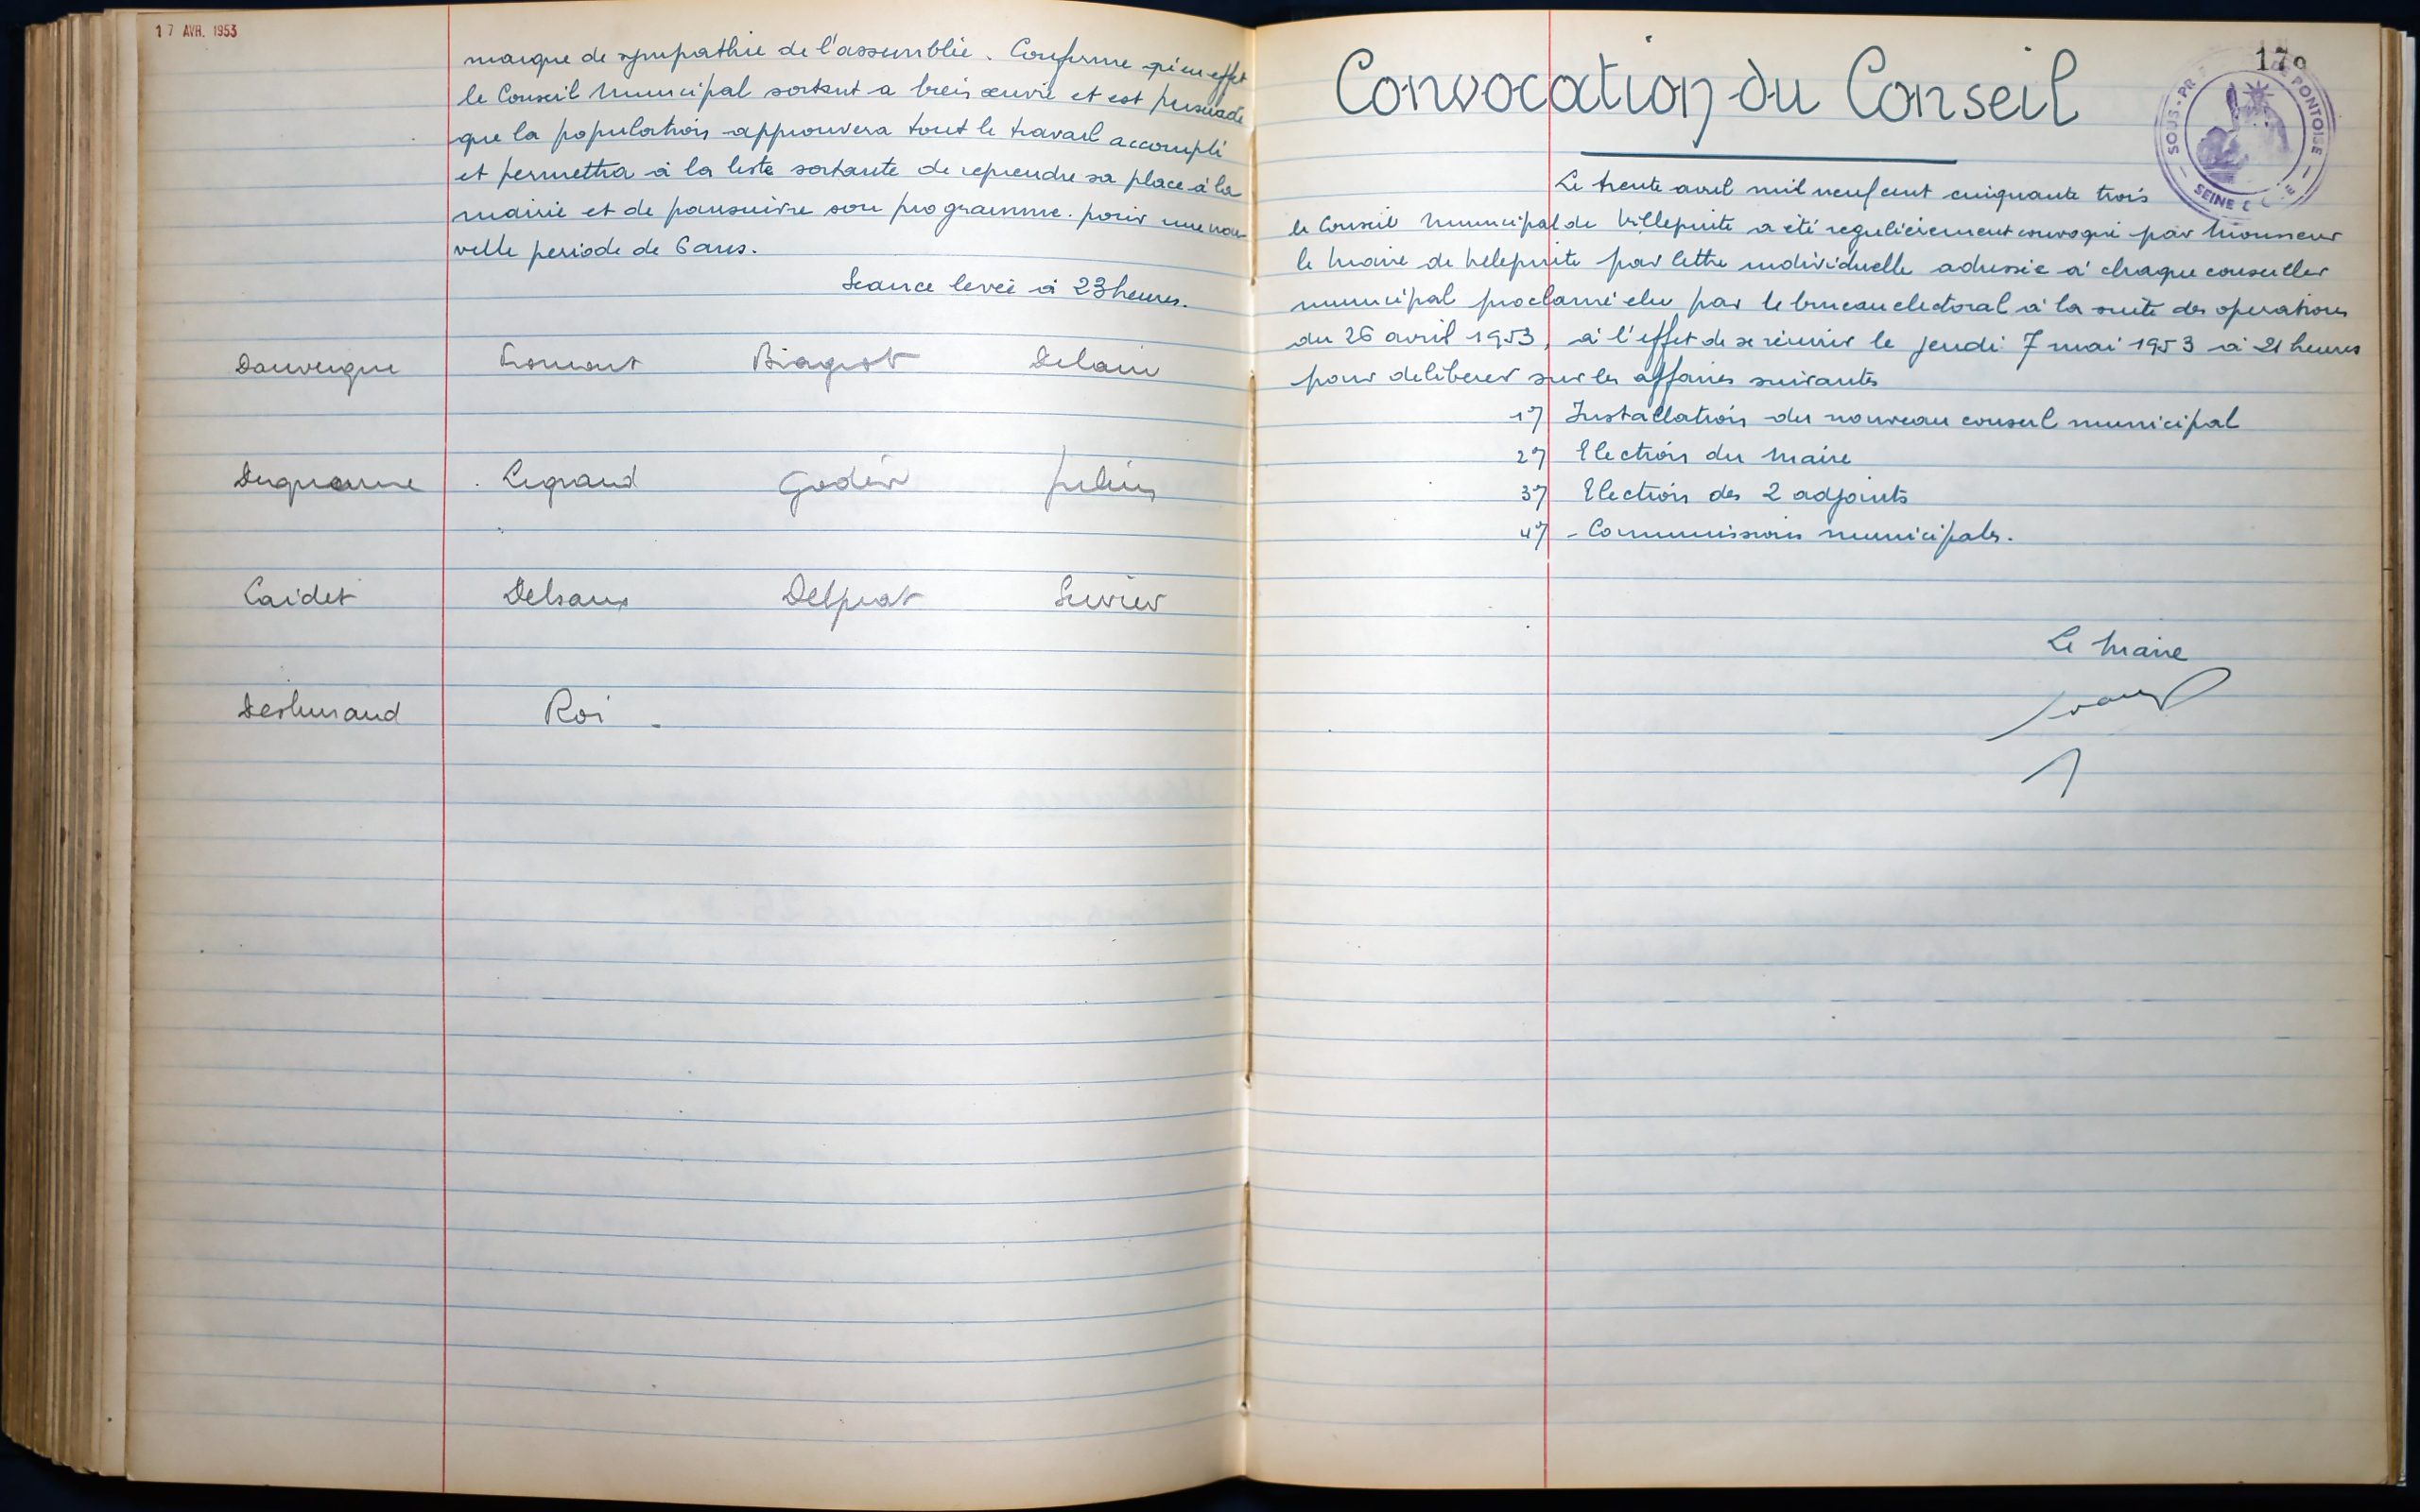 17 AVR. 1953
marque de sympathie de l'assemblée. Confirme qu'en effet
le Conseil Municipal sortant a bien œuvré et est persuadé
que la population approuvera tout le travail accompli
et permettra à la liste sortante de reprendre sa place à la
mairie et de poursuivre son programme. pour une nou
velle periode de 6 ans.
Seance levée à 23 heures.
Dauvergne Lomont Biagiot Delain
Legrand Godin Julien
Caidet Delsaux Delprat Serrier
Deshuraud Roi
179
Convocation du Conseil
SOUS-PR DE PONTOISE
SEINE
Le trente avril mil neuf cent cinquante trois
le Conseil Municipal de Villepinte a été regulièrement convoqué par Monsieur
le Maire de Villepinte par lettre individuelle adressée à chaque conseiller
municipal proclamé elu par le bureau electoral à la suite des operations
du 26 avril 1953, à l'effet de se réunir le jeudi 7 mai 1953 à 21 heures
pour deliberer sur les affaires suivantes
1°/ Installation du nouveau conseil municipal
2°/ Election du Maire
3°/ Election des 2 adjoints
4°/ - Commissions municipales.
Le Maire